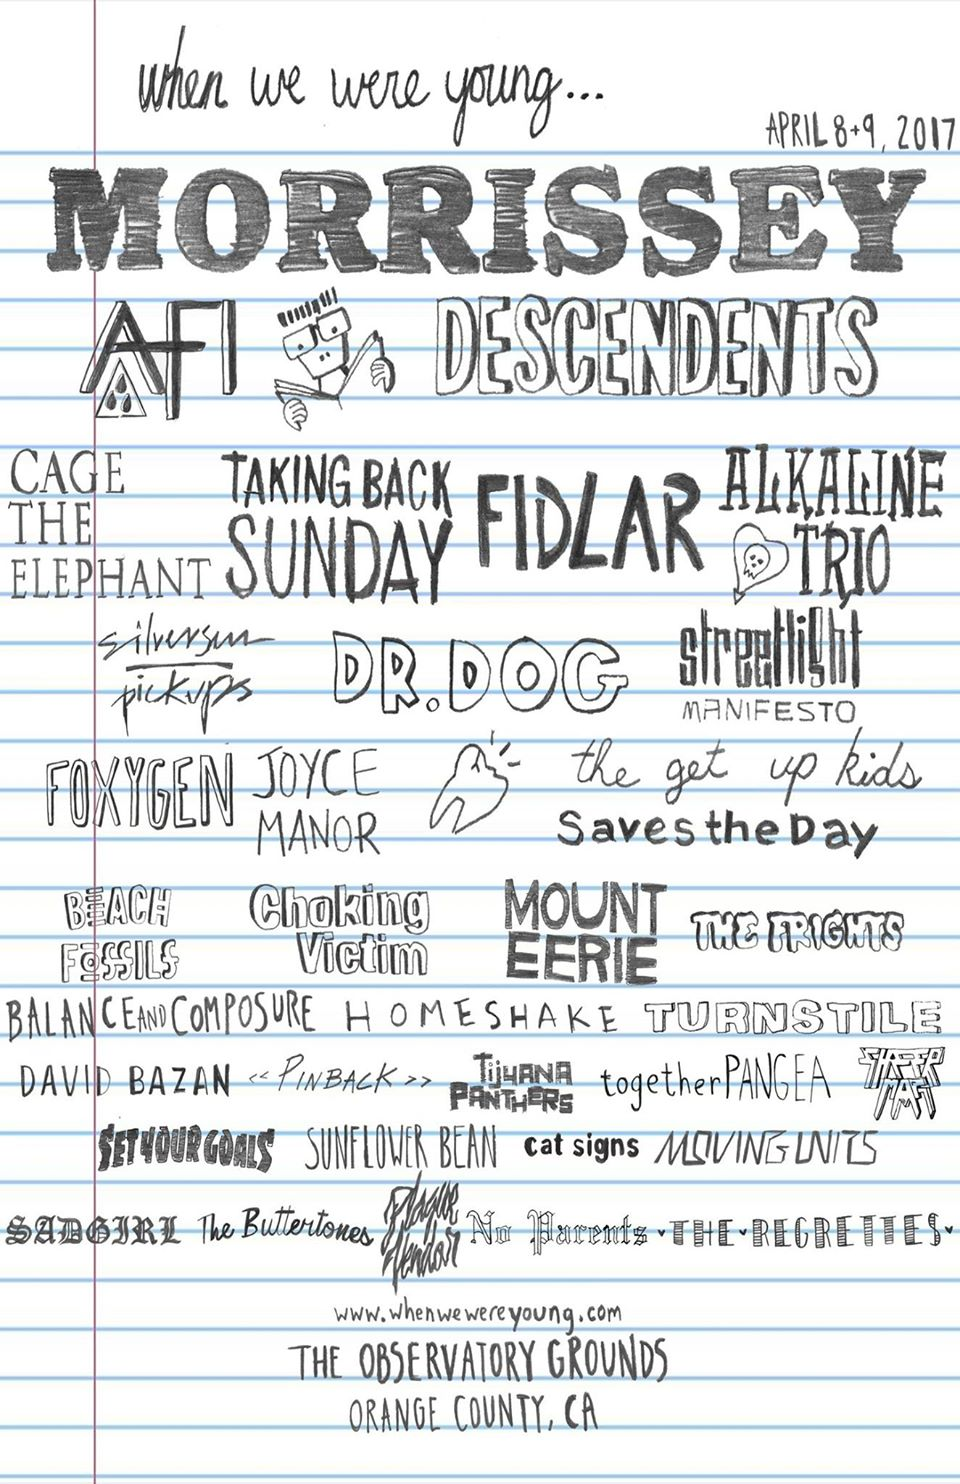 when we were young...
APRIL 8+9, 2017
MORRISSEY
AFI DESCENDENTS
CAGE THE ELEPHANT
TAKING BACK SUNDAY
FIDLAR
ALKALINE TRIO
silversun pickups
DR. DOG
streetlight MANIFESTO
FOXYGEN
JOYCE MANOR
the get up kids
Saves the Day
BEACH FOSSILS
Choking Victim
MOUNT EERIE
THE FRIGHTS
BALANCE AND COMPOSURE HOMESHAKE TURNSTILE
DAVID BAZAN << PINBACK >> TIJUANA PANTHERS together PANGEA SHEER MAG
SET YOUR GOALS SUNFLOWER BEAN cat signs MOVING UNITS
SADGIRL The Buttertones Plague Vendor No Parents • THE • REGRETTES •
www.whenwewereyoung.com
THE OBSERVATORY GROUNDS
ORANGE COUNTY, CA